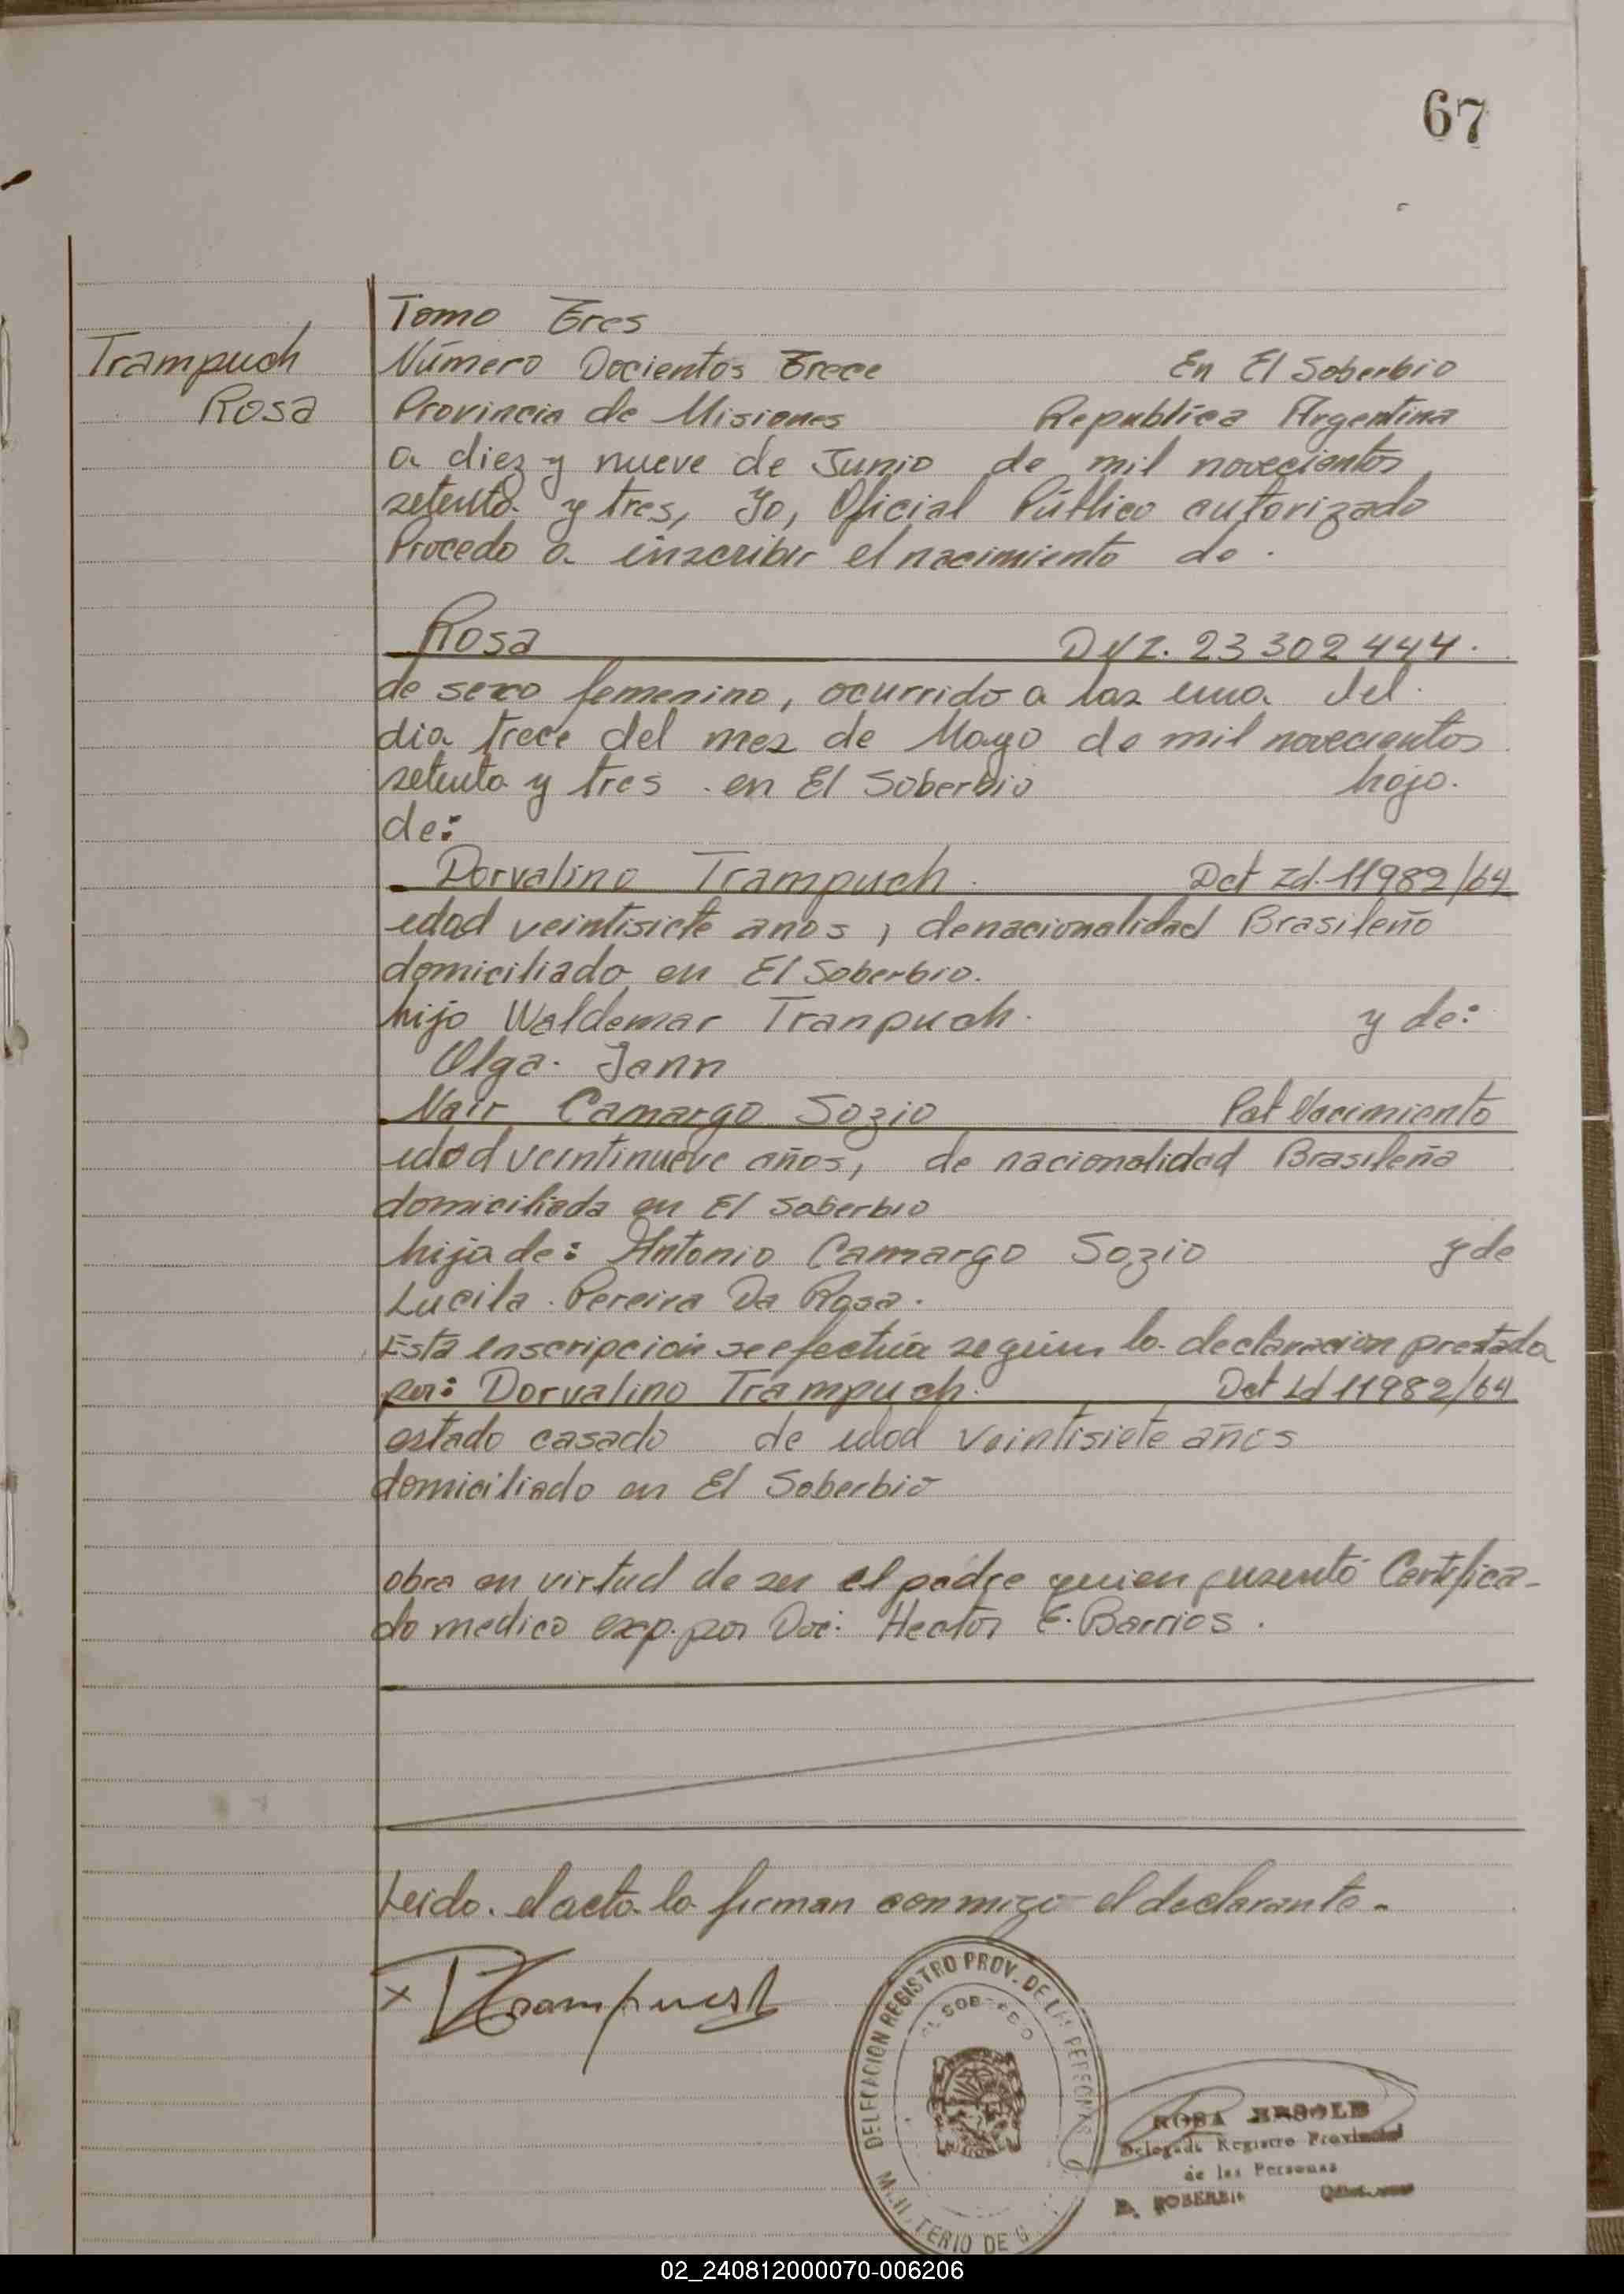 67
Trampuch
Rosa
Tomo Tres
Número Docientos Trece En El Soberbio
Provincia de Misiones Republica Argentina
a diez y nueve de Junio de mil novecientos
setenta y tres, Yo, Oficial Público autorizado
Procedo a inscribir el nacimiento de.
Rosa DNI. 23302444.
de sexo femenino, ocurrido a las una del
dia trece del mes de Mayo de mil novecientos
setenta y tres en El Soberbio hojo.
de:
Dorvalino Trampuch. Dct Id. 11982/64
edad veintisiete anos, de nacionalidad Brasileño
domiciliado en El Soberbio.
hijo Waldemar Tranpuch. y de:
Olga. Jann
Nair Camargo Sozio Pat Nacimiento
edad veintinueve años, de nacionalidad Brasileña
domiciliada en El Soberbio
hija de: Antonio Camargo Sozio y de
Lucila. Pereira Da Rosa.
Esta inscripción se efectúa según la declaracion prestada
por: Dorvalino Trampuch. Dct Id 11982/64
estado casado de edad veintisiete años
domiciliado en El Soberbio
obra en virtud de ser el padre quien presentó Certifica-
do medico exp. por Doc: Hector E. Barrios.
Leido. el acta la firman conmigo el declarante.
x DTrampuch
DELEGACION REGISTRO PROV. DE LAS PERSONAS
EL SOBERBIO
MINISTERIO DE G
ROSA
Delegada Registro Provincial
de las Personas
EL SOBERBIO
02_240812000070-006206